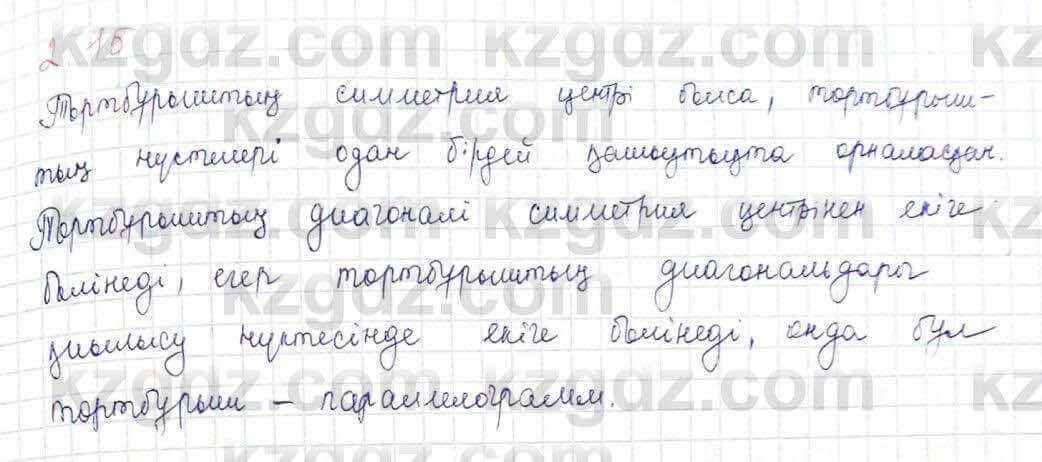 2.15
Төртбұрыштың симметрия центрі болса, төртбұрыш-
тың нүктелері одан бірдей қашықтықта орналасқан.
Төртбұрыштың диагоналі симметрия центрінен екіге
бөлінеді, егер төртбұрыштың диагональдары
қиылысу нүктесінде екіге бөлінеді, онда бұл
төртбұрыш – параллелограмм.
kzgdz.com